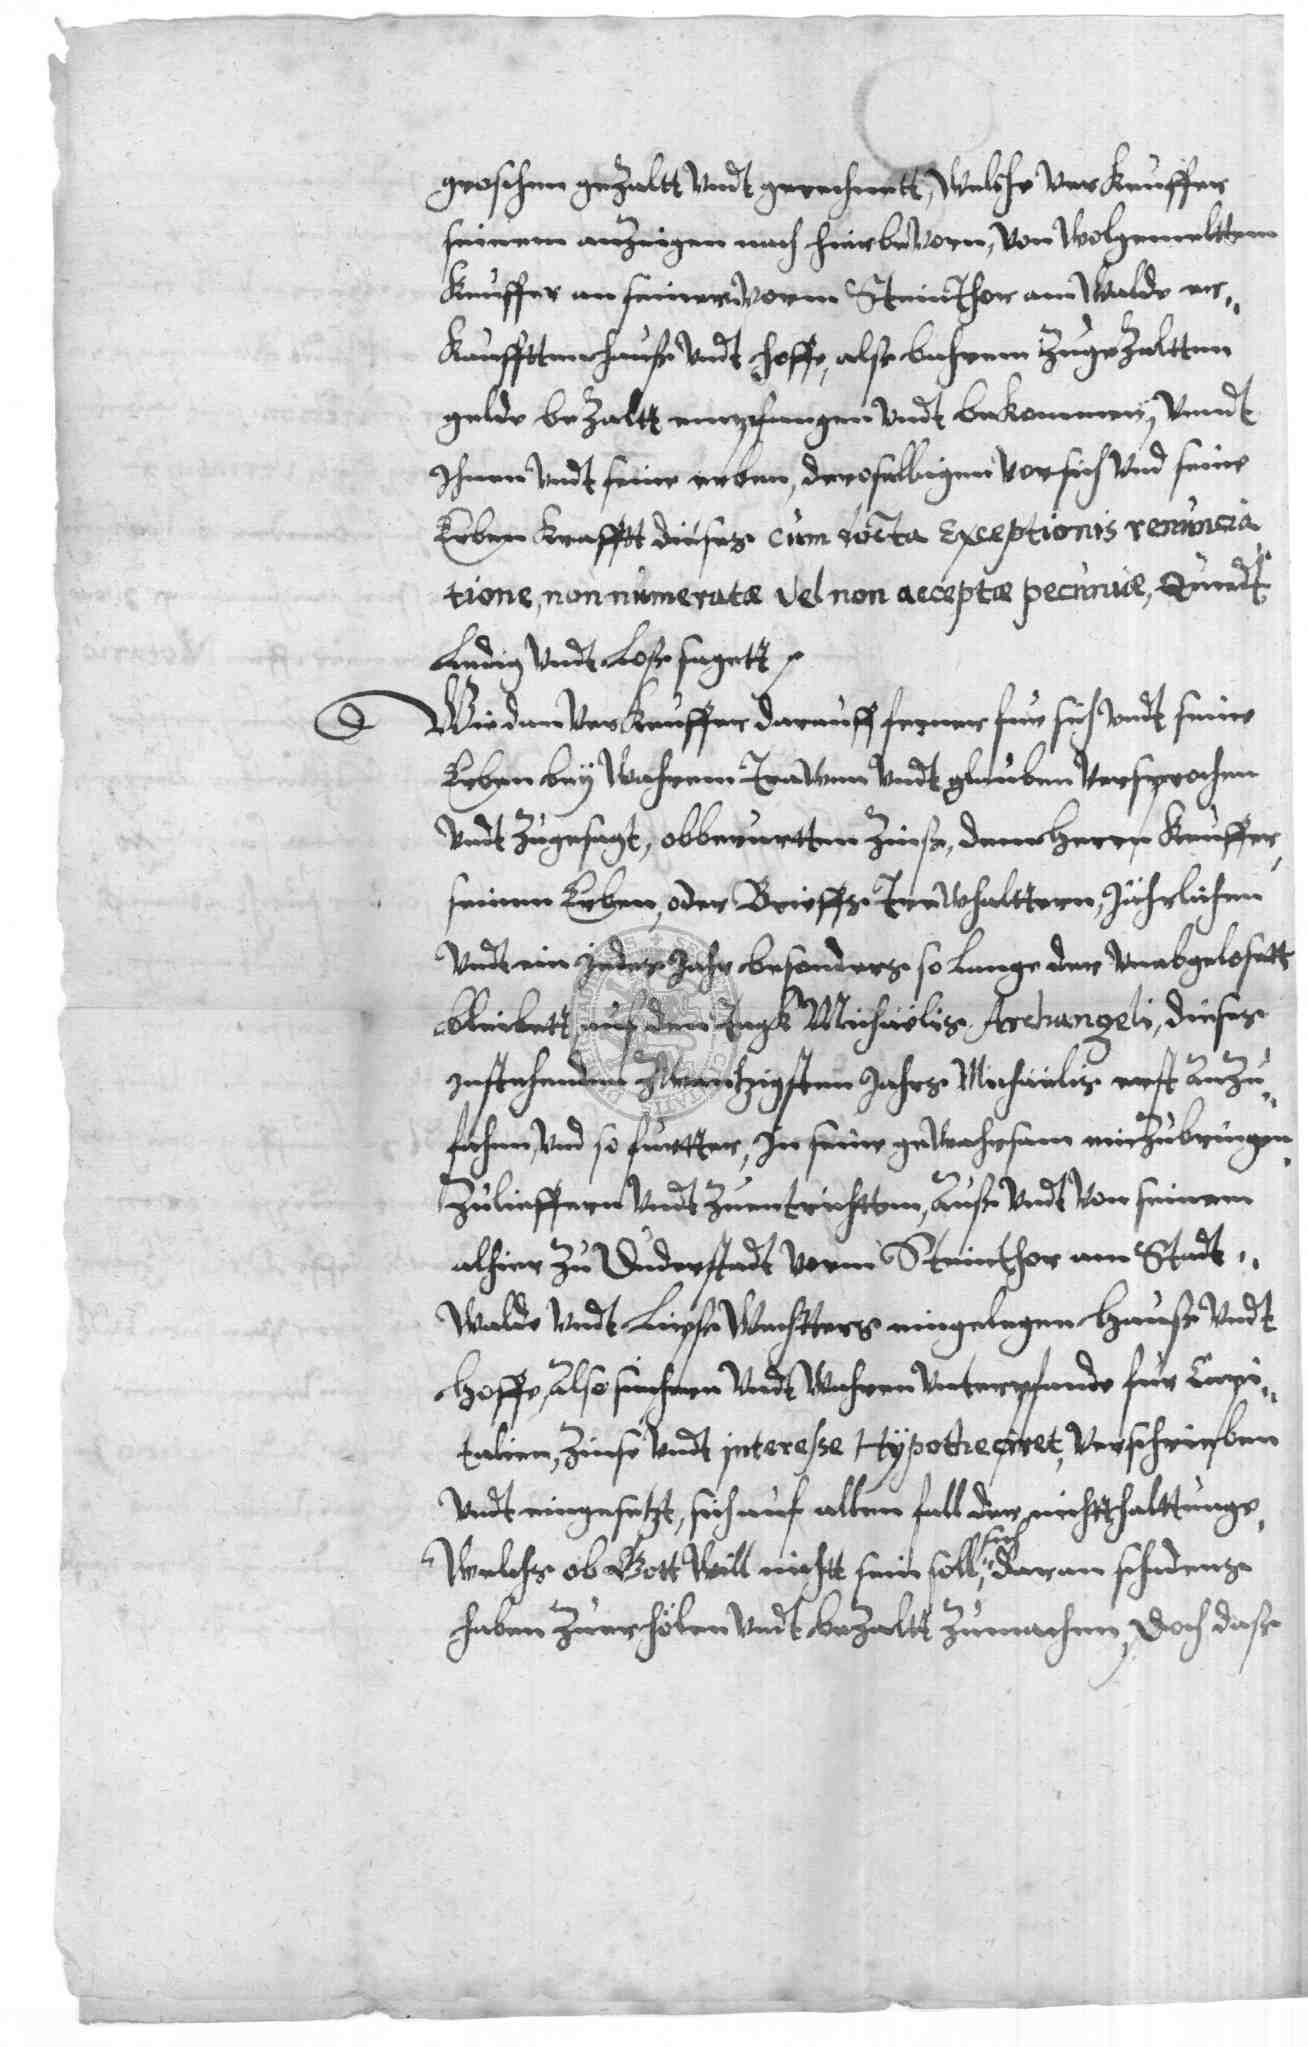 groschen gezaltt vndt gerechnett, Welche Verkeuffer
seinem anzeigen nach hierbeVorn, Von Wolgemelttem
Keuffer an seinem Vorm Steinthor am Walde er„
Kaufftten hause vndt hoffe, alse bahrem Zugezaltten
gelde bezaltt empfangen vndt bekommen, Vnndt
Ihnen vndt seine erben, deroselbigen Vor sich Vnd seine
Erben Krafftt dieses cum docta Exceptionis renuncia
tione, non numeratæ vel non acceptæ pecuniæ, Quidt
Ledig vndt Loß sagett
Wie dan Verkeuffer darauff ferner fur sich vndt seine
Erben bey Wahrem TraWen vndt glauben Versprochen
vndt Zugesagt, obberurtten Zinse, dem Herrn Keuffer,
seinen Erben, oder Brieffs TreWhalttern, Jährlichen
vndt ein Jedes Jahr besonders so Lange der vnabgelosett
bleibett, auf den Tagk Michaëlis Archangeli, dieses
zustehenden ZWantzigsten Jahrs Michaëlis erst anzu„
fahen, vnd so furtter, In seine geWahrsam einzubringen
Zulieffern vndt Zuentrichtten, Auß vndt Von seinem
alhier zu Duderstadt Vorm Steinthor am Stadt„
Walde vndt Wechtters eingelegen Hause vndt
Hoffe, Also sichern vndt Wahren Vnterpfande für Capi„
talien, Zinse vndt interesse Hÿpotheciret, Verschrieben
vndt eingesetzt, sich auf allen fall der nichtthalttunge,
Welchs ob Gott Will nichtt sein soll, sich daran schadens
haben Zuerhölen vndt bezaltt Zumachen, Doch dase